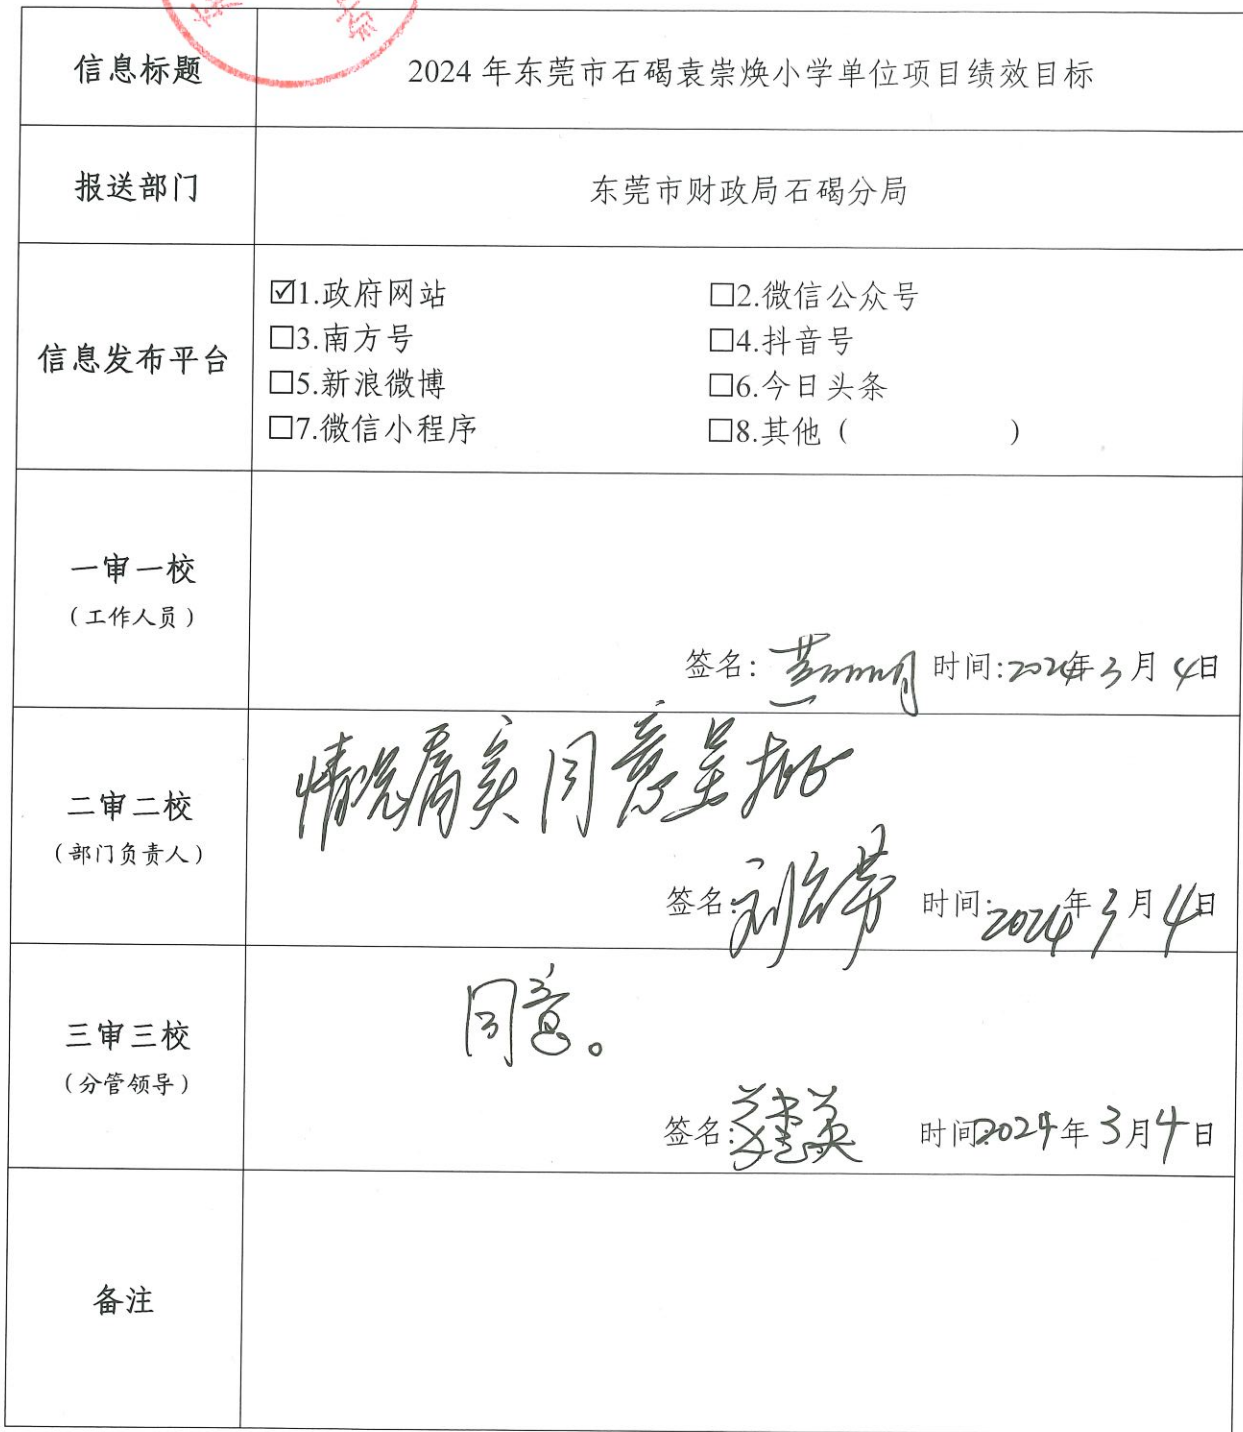 信息标题
2024年东莞市石碣袁崇焕小学单位项目绩效目标
报送部门
东莞市财政局石碣分局
信息发布平台
☑1.政府网站 □2.微信公众号
□3.南方号 □4.抖音号
□5.新浪微博 □6.今日头条
□7.微信小程序 □8.其他（ ）
一审一校
（工作人员）
签名： 时间:2024年3月4日
情况属实同意呈批
二审二校
（部门负责人）
签名: 时间:2024年3月4日
同意。
三审三校
（分管领导）
签名: 时间:2024年3月4日
备注